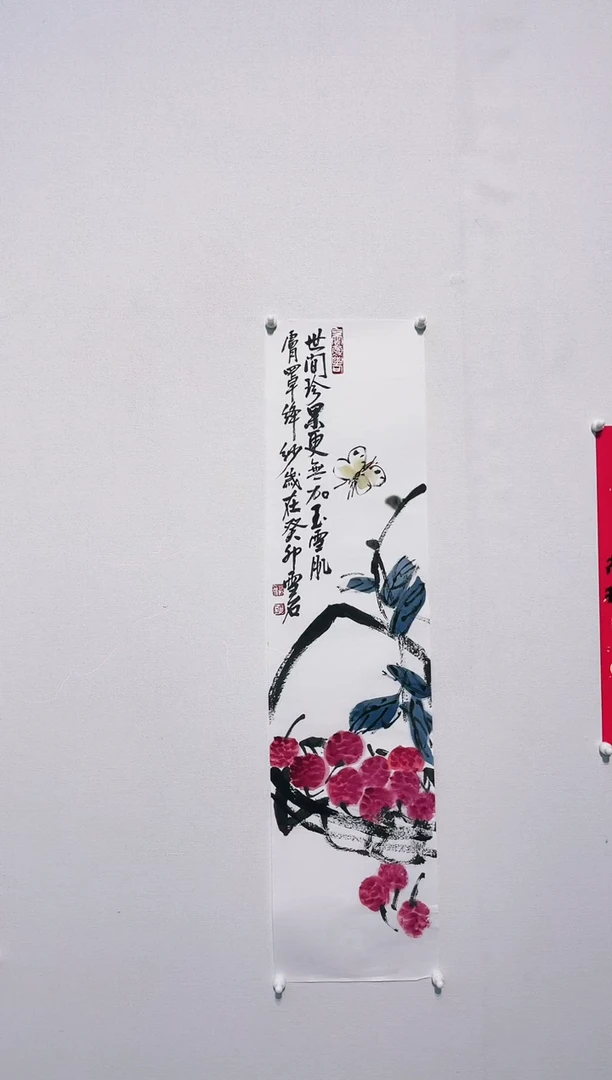 世间珍果更無加玉雪肌
膚罩绛纱歲在癸卯雪石